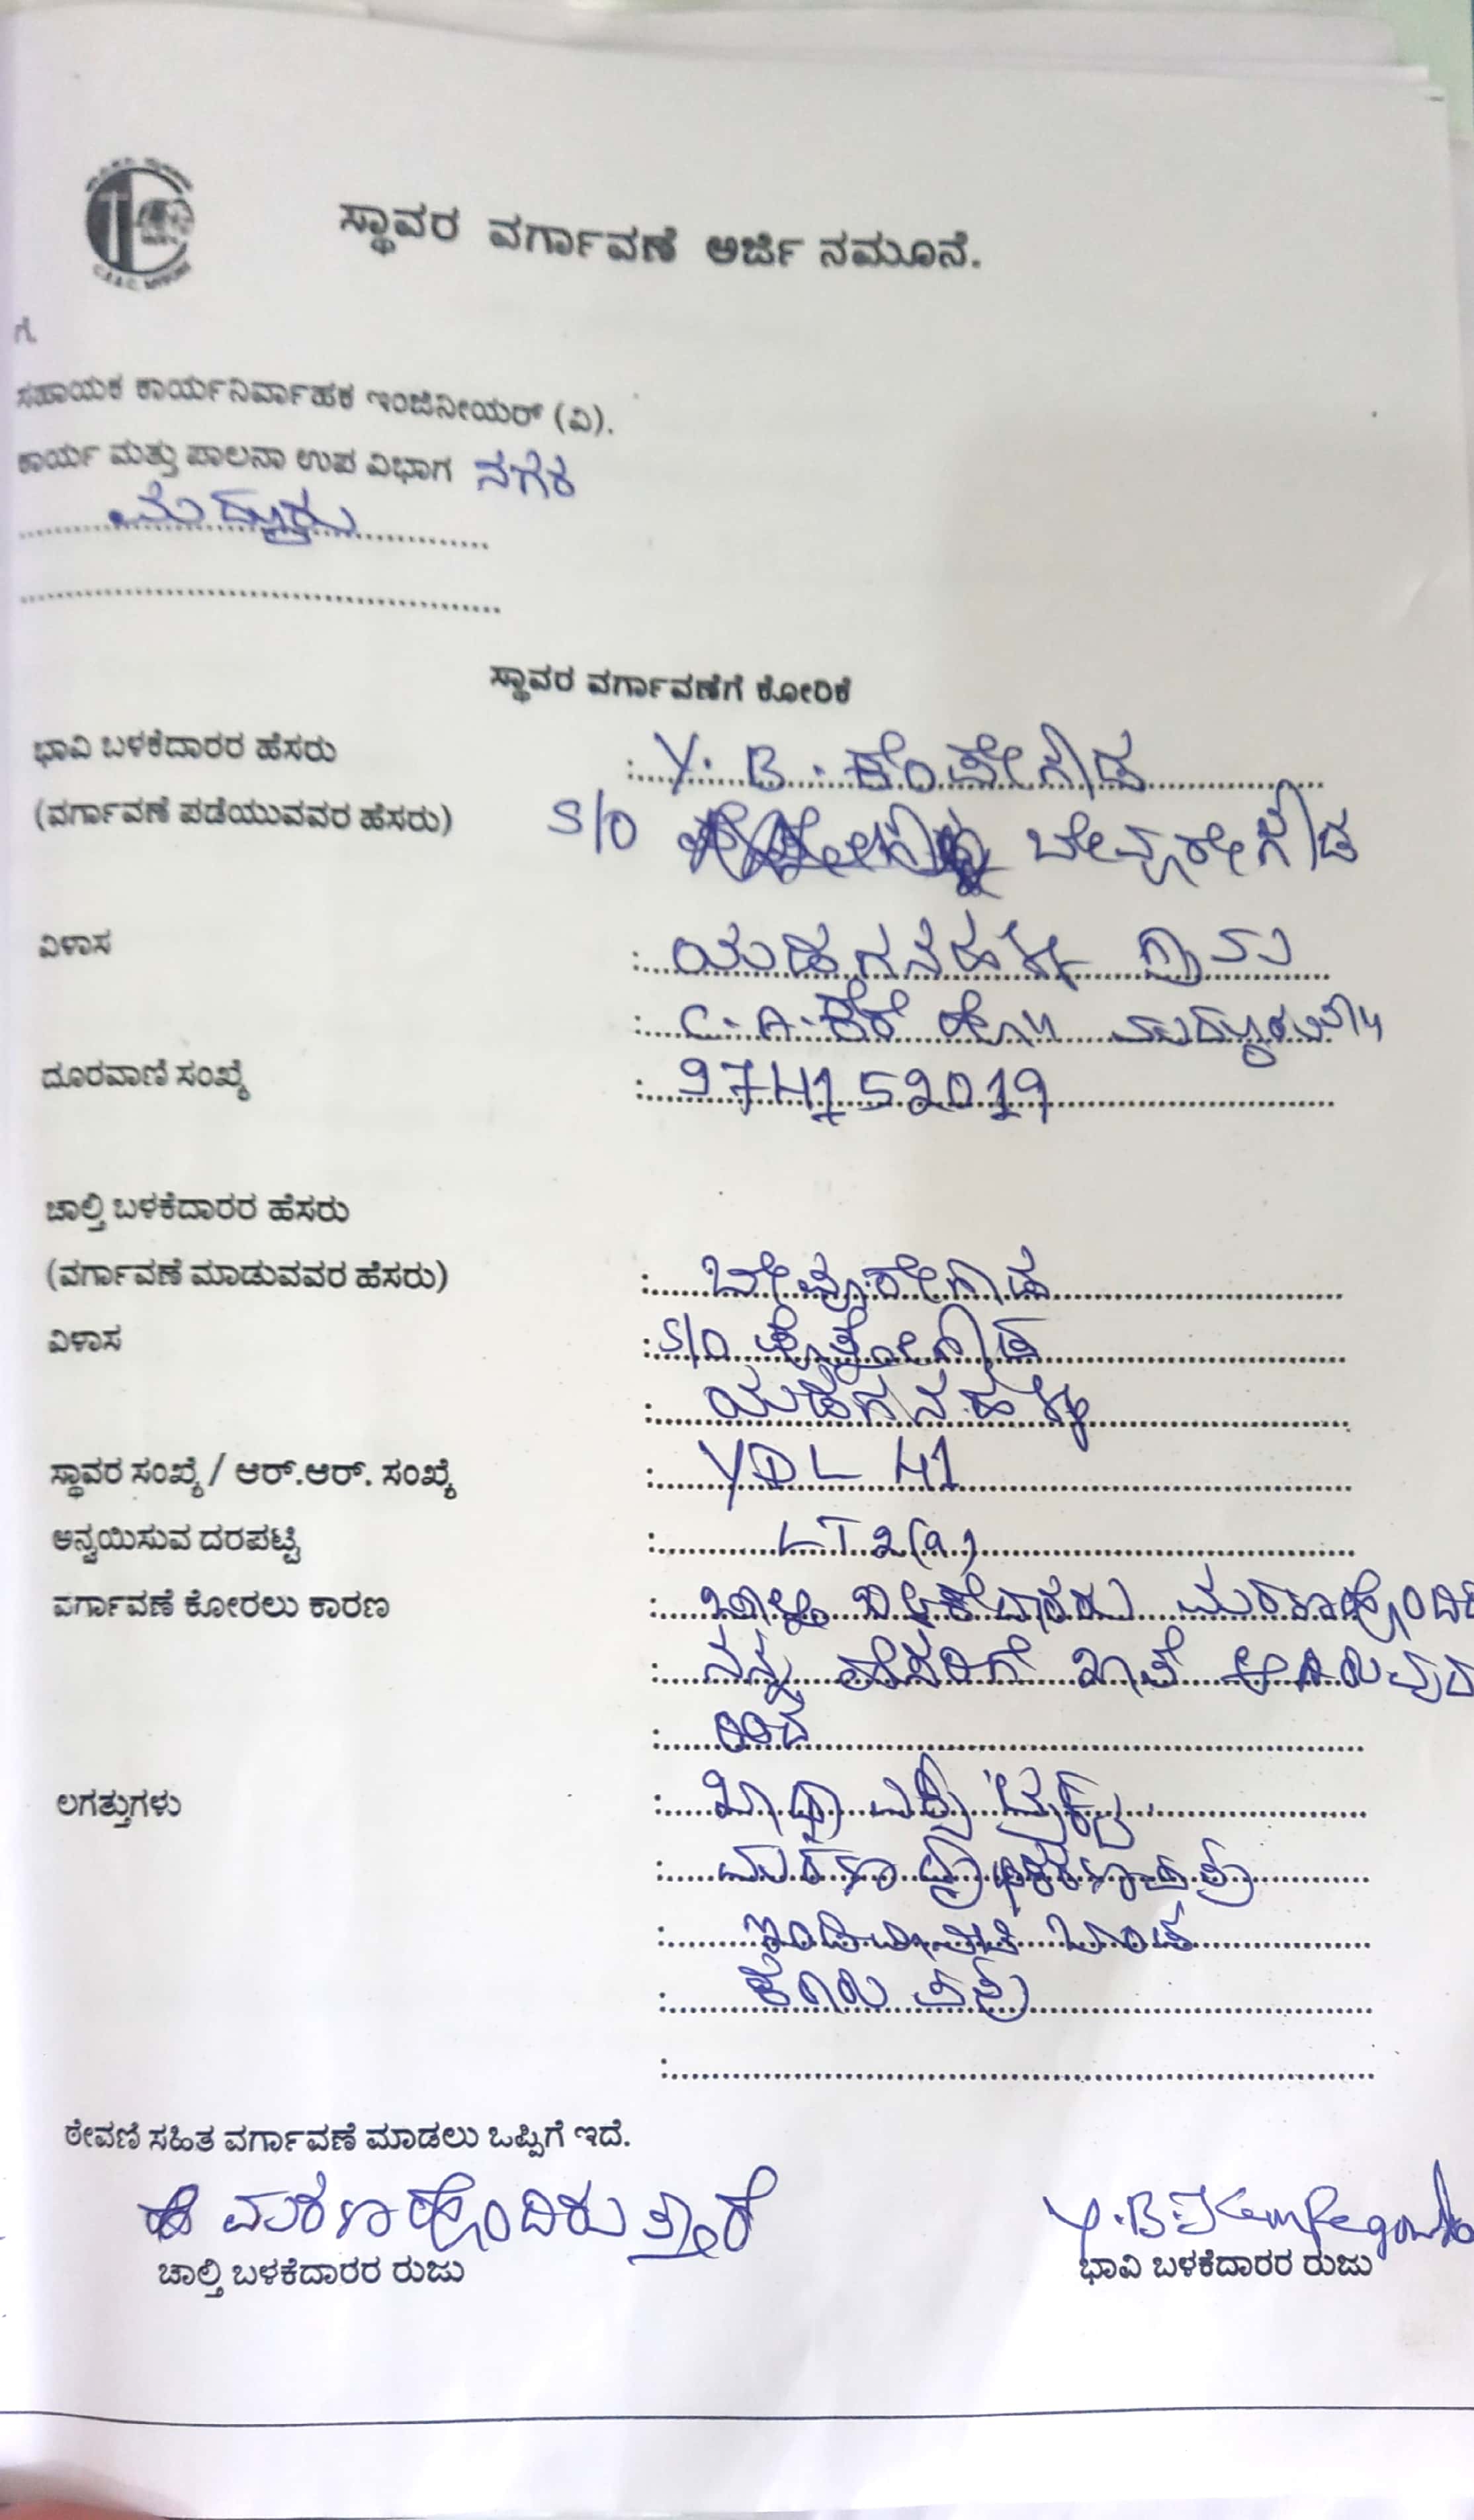 ಸ್ಥಾವರ ವರ್ಗಾವಣೆ ಅರ್ಜಿ ನಮೂನೆ.
ಗೆ.
ಸಹಾಯಕ ಕಾರ್ಯನಿರ್ವಾಹಕ ಇಂಜಿನೀಯರ್ (ವಿ).
ಕಾರ್ಯ ಮತ್ತು ಪಾಲನಾ ಉಪ ವಿಭಾಗ ನಗರ
ಮದ್ದೂರು
ಸ್ಥಾವರ ವರ್ಗಾವಣೆಗೆ ಕೋರಿಕೆ
ಭಾವಿ ಬಳಕೆದಾರರ ಹೆಸರು : Y. B. ಕೆಂಪೇಗೌಡ
(ವರ್ಗಾವಣೆ ಪಡೆಯುವವರ ಹೆಸರು) S/O
ವಿಳಾಸ : ಯಡಗನಹಳ್ಳಿ ಗ್ರಾಮ
: C. A. ಕೆರೆ ಹೋ॥ ಮದ್ದೂರು ತಾ॥
ದೂರವಾಣಿ ಸಂಖ್ಯೆ : 9741152019
ಚಾಲ್ತಿ ಬಳಕೆದಾರರ ಹೆಸರು
(ವರ್ಗಾವಣೆ ಮಾಡುವವರ ಹೆಸರು) :
ವಿಳಾಸ : S/O
: ಯಡಗನಹಳ್ಳಿ
ಸ್ಥಾವರ ಸಂಖ್ಯೆ / ಆರ್.ಆರ್. ಸಂಖ್ಯೆ : YDL 41
ಅನ್ವಯಿಸುವ ದರಪಟ್ಟಿ : LT 2(a)
ವರ್ಗಾವಣೆ ಕೋರಲು ಕಾರಣ : ಚಾಲ್ತಿ ಬಳಕೆದಾರರು ಮರಣಹೊಂದಿ
: ನನ್ನ ಹೆಸರಿಗೆ ಖಾತೆ
:
ಲಗತ್ತುಗಳು :
: ಮರಣ
: ಇಂಡಿಮನಿಟಿ ಬಾಂಡ
: ಕರಾರು ಪತ್ರ
:
ಠೇವಣಿ ಸಹಿತ ವರ್ಗಾವಣೆ ಮಾಡಲು ಒಪ್ಪಿಗೆ ಇದೆ.
ಮರಣಹೊಂದಿರುತ್ತಾರೆ Y.B. Kempegowda
ಚಾಲ್ತಿ ಬಳಕೆದಾರರ ರುಜು ಭಾವಿ ಬಳಕೆದಾರರ ರುಜು